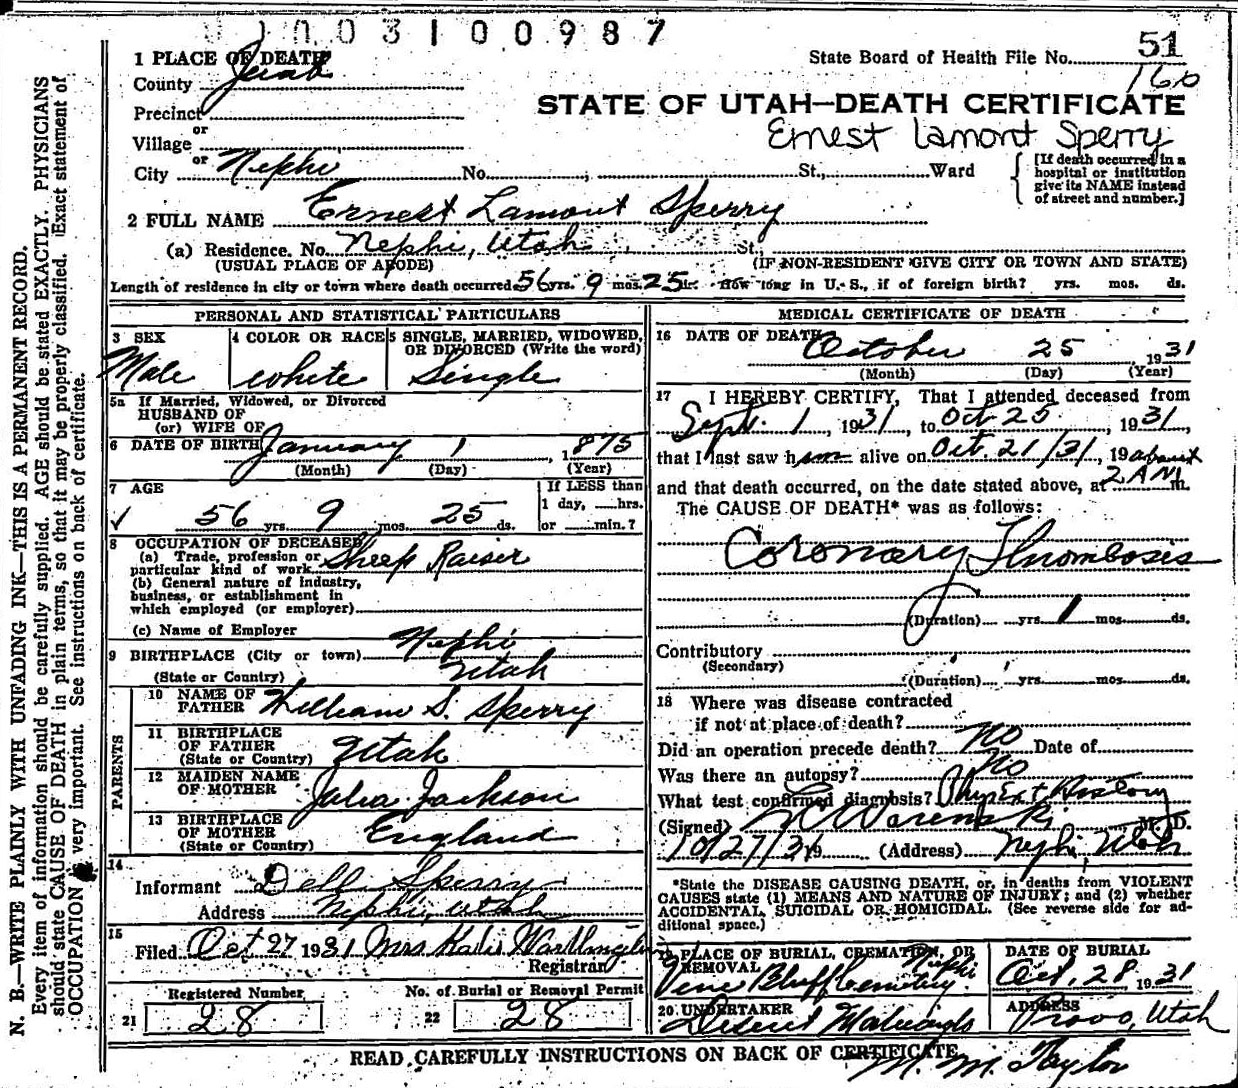 003100987
1 PLACE OF DEATH
State Board of Health File No. 51
County Juab
160
Precinct
STATE OF UTAH—DEATH CERTIFICATE
or
Village
Ernest Lamont Sperry
or
City Nephi No. St., Ward
[If death occurred in a hospital or institution give its NAME instead of street and number.]
2 FULL NAME Ernest Lamont Sperry
(a) Residence. No. Nephi, Utah St.,
(USUAL PLACE OF ABODE) (IF NON-RESIDENT GIVE CITY OR TOWN AND STATE)
Length of residence in city or town where death occurred 56 yrs. 9 mos. 25 ds. How long in U. S., if of foreign birth? yrs. mos. ds.
PERSONAL AND STATISTICAL PARTICULARS
3 SEX 4 COLOR OR RACE 5 SINGLE, MARRIED, WIDOWED, OR DIVORCED (Write the word)
Male white Single
5a If Married, Widowed, or Divorced
HUSBAND OF
(or) WIFE OF
6 DATE OF BIRTH January 1, 1875
(Month) (Day) (Year)
7 AGE
If LESS than
1 day, hrs.
✓ 56 yrs. 9 mos. 25 ds. or min.?
8 OCCUPATION OF DECEASED
(a) Trade, profession or
particular kind of work Sheep Raiser
(b) General nature of industry,
business, or establishment in
which employed (or employer)
(c) Name of Employer
9 BIRTHPLACE (City or town) Nephi
(State or Country) Utah
PARENTS
10 NAME OF FATHER William S. Sperry
11 BIRTHPLACE OF FATHER
(State or Country) Utah
12 MAIDEN NAME OF MOTHER Julia Jackson
13 BIRTHPLACE OF MOTHER
(State or Country) England
14
Informant Della Sperry
Address Nephi, Utah
15
Filed Oct 27 1931 Mrs Katie
Registrar
Registered Number No. of Burial or Removal Permit
21 28 22 28
MEDICAL CERTIFICATE OF DEATH
16 DATE OF DEATH October 25, 1931
(Month) (Day) (Year)
17 I HEREBY CERTIFY, That I attended deceased from
Sept. 1, 1931, to Oct 25, 1931,
that I last saw him alive on Oct. 21/31, 19 about
and that death occurred, on the date stated above, at 2 AM m.
The CAUSE OF DEATH* was as follows:
Coronary Thrombosis
(Duration) yrs. 1 mos. ds.
Contributory
(Secondary)
(Duration) yrs. mos. ds.
18 Where was disease contracted
if not at place of death?
Did an operation precede death? No Date of
Was there an autopsy? No
What test confirmed diagnosis? Phy Ex + History
(Signed) M. D.
10/27/31 19 (Address) Nephi, Utah
*State the DISEASE CAUSING DEATH, or, in deaths from VIOLENT
CAUSES state (1) MEANS AND NATURE OF INJURY; and (2) whether
ACCIDENTAL, SUICIDAL OR HOMICIDAL. (See reverse side for ad-
ditional space.)
19 PLACE OF BURIAL, CREMATION, OR REMOVAL Nephi
Vine Bluff Cemetery.
DATE OF BURIAL
Oct. 28, 1931
20 UNDERTAKER ADDRESS
Provo, Utah
M. M. Taylor
READ CAREFULLY INSTRUCTIONS ON BACK OF CERTIFICATE
N. B.—WRITE PLAINLY WITH UNFADING INK—THIS IS A PERMANENT RECORD.
Every item of information should be carefully supplied. AGE should be stated EXACTLY. PHYSICIANS
should state CAUSE OF DEATH in plain terms, so that it may be properly classified. Exact statement of
OCCUPATION very important. See instructions on back of certificate.